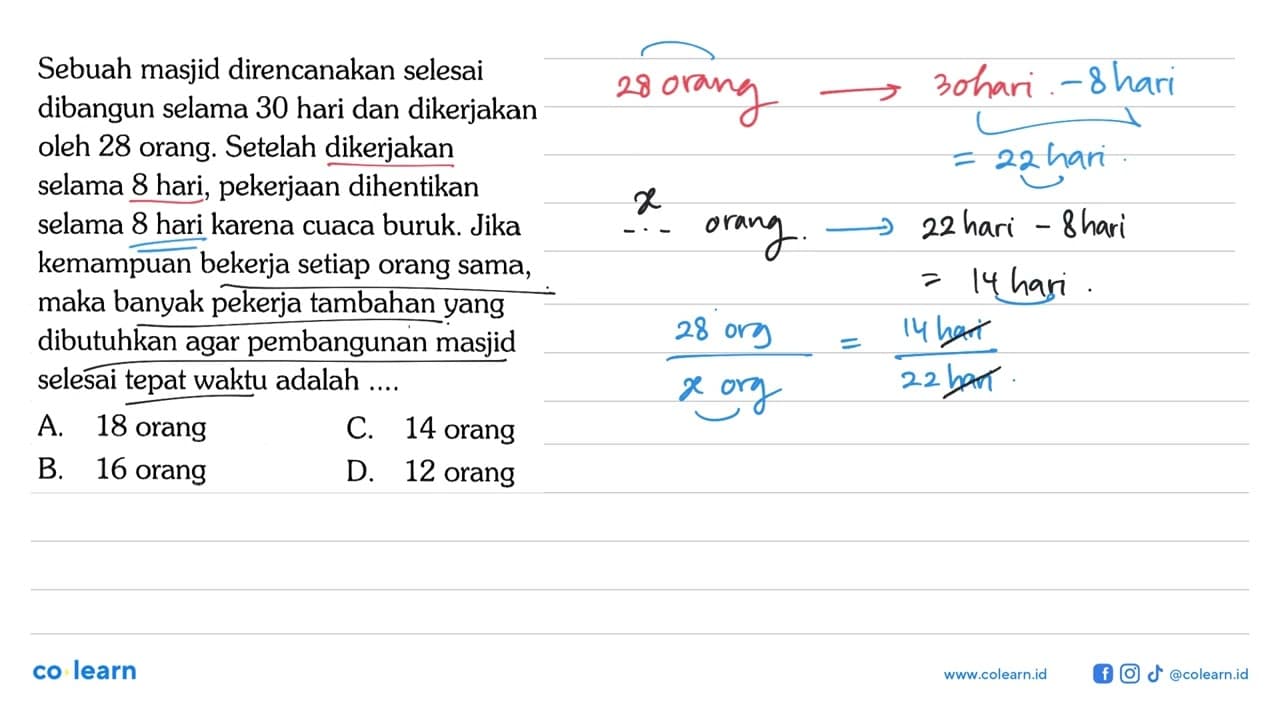 Sebuah masjid direncanakan selesai
dibangun selama 30 hari dan dikerjakan
oleh 28 orang. Setelah dikerjakan
selama 8 hari, pekerjaan dihentikan
selama 8 hari karena cuaca buruk. Jika
kemampuan bekerja setiap orang sama,
maka banyak pekerja tambahan yang
dibutuhkan agar pembangunan masjid
selesai tepat waktu adalah ....
A. 18 orang C. 14 orang
B. 16 orang D. 12 orang
28 orang → 30 hari. - 8 hari
= 22 hari.
x
--- orang. → 22 hari - 8 hari
= 14 hari.
28 org = 14 hari
x org 22 hari.
co learn
www.colearn.id @colearn.id